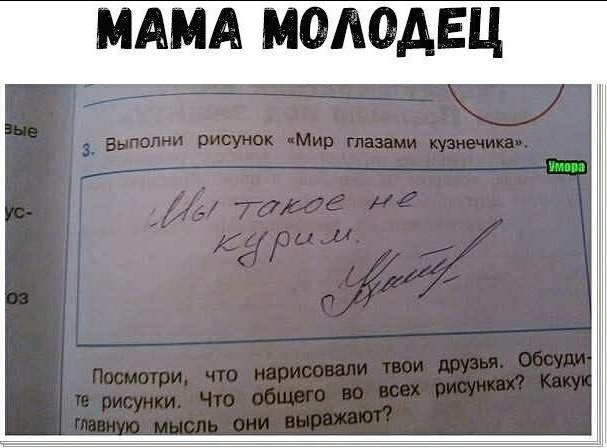 МАМА МОЛОДЕЦ
вые
3. Выполни рисунок «Мир глазами кузнечика».
Умора
Мы такое не
курим.
ус-
оз
Посмотри, что нарисовали твои друзья. Обсуди-
те рисунки. Что общего во всех рисунках? Какую
главную мысль они выражают?